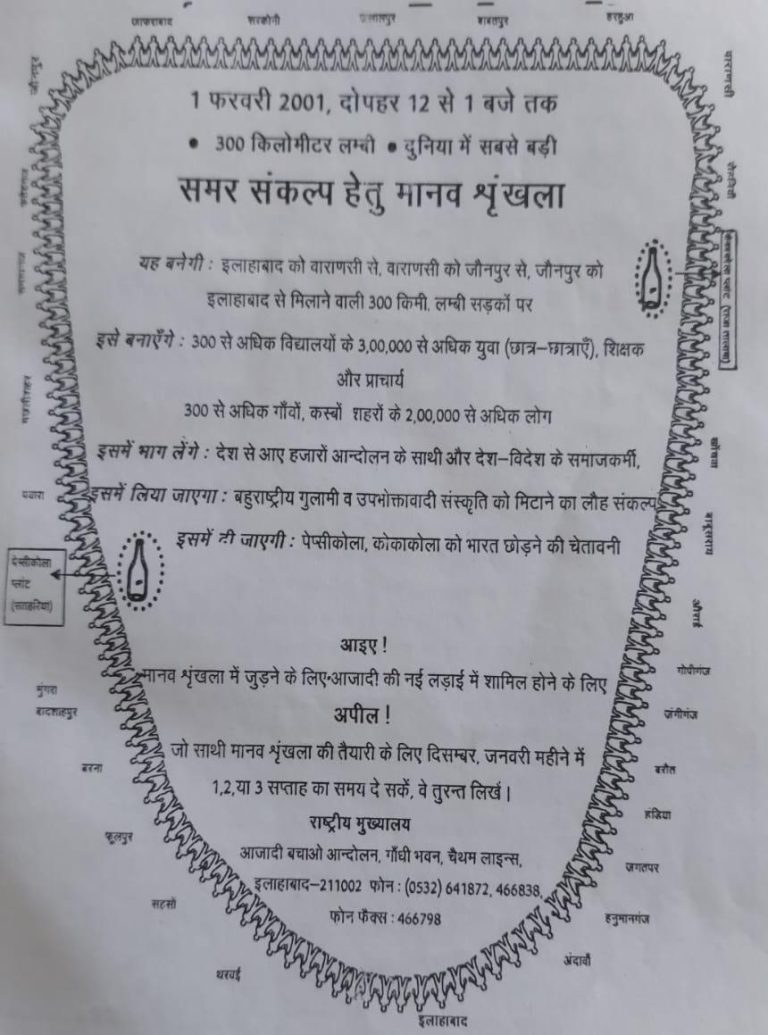 जाफराबाद
सरकोनी
जलालपुर
बाबतपुर
हरहुआ
जौनपुर
वाराणसी
1 फरवरी 2001, दोपहर 12 से 1 बजे तक
• 300 किलोमीटर लम्बी • दुनिया में सबसे बड़ी
समर संकल्प हेतु मानव श्रृंखला
यह बनेगी : इलाहाबाद को वाराणसी से, वाराणसी को जौनपुर से, जौनपुर को
इलाहाबाद से मिलाने वाली 300 किमी. लम्बी सड़कों पर
इसे बनाएँगे : 300 से अधिक विद्यालयों के 3,00,000 से अधिक युवा (छात्र–छात्राएँ), शिक्षक
और प्राचार्य
300 से अधिक गाँवों, कस्बों शहरों के 2,00,000 से अधिक लोग
मछलीशहर
इसमें भाग लेंगे : देश से आए हजारों आन्दोलन के साथी और देश–विदेश के समाजकर्मी,
पवारा
इसमें लिया जाएगा : बहुराष्ट्रीय गुलामी व उपभोक्तावादी संस्कृति को मिटाने का लौह संकल्प
बाबूसराय
इसमें दी जाएगी : पेप्सीकोला, कोकाकोला को भारत छोड़ने की चेतावनी
पेप्सीकोला
प्लांट
(सतहरिया)
औराई
आइए !
गोपीगंज
मानव श्रृंखला में जुड़ने के लिए•आजादी की नई लड़ाई में शामिल होने के लिए
मुंगरा
बादशाहपुर
जंगीगंज
अपील !
जो साथी मानव श्रृंखला की तैयारी के लिए दिसम्बर, जनवरी महीने में
बरना
बरौत
1,2,या 3 सप्ताह का समय दे सकें, वे तुरन्त लिखें।
हंडिया
राष्ट्रीय मुख्यालय
फूलपुर
आजादी बचाओ आन्दोलन, गाँधी भवन, चैथम लाइन्स,
जगतपर
इलाहाबाद–211002 फोन : (0532) 641872, 466838,
सहसो
फोन फैक्स : 466798
हनुमानगंज
थरवई
अंदावाँ
इलाहाबाद